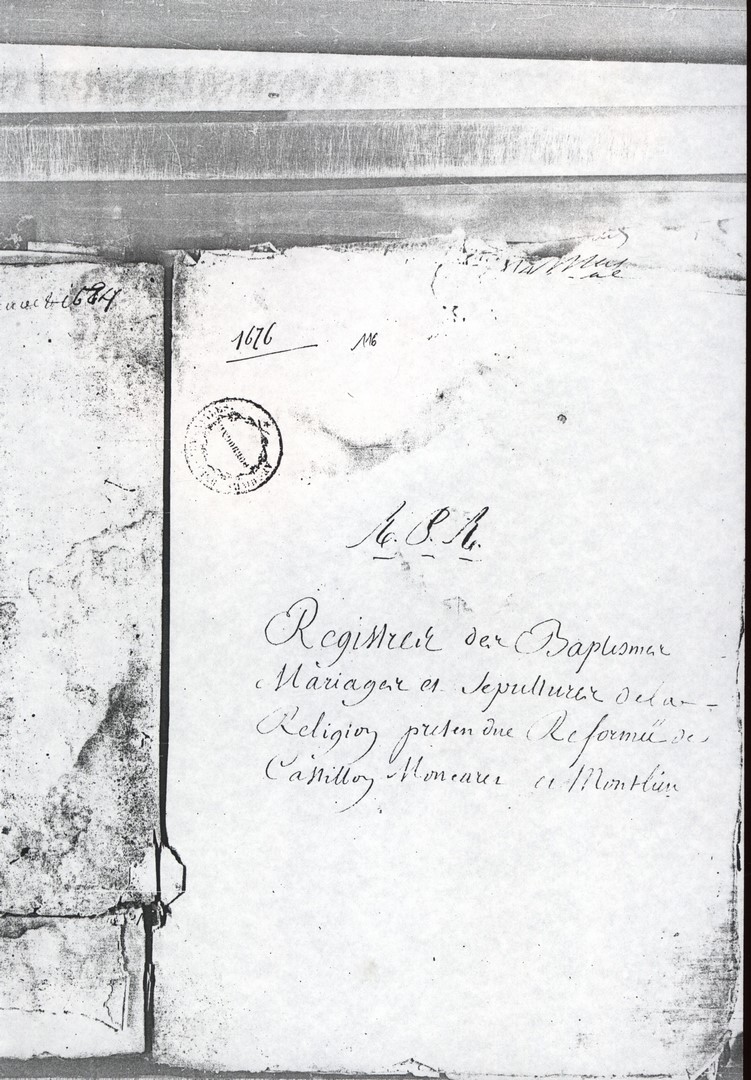 1684
1676 116
R. P. R.
Registreir der Baptismer
Màriager et Sepulturer de la
Religion pretendue Reformée de
Castillon Moncaret et Montlieu